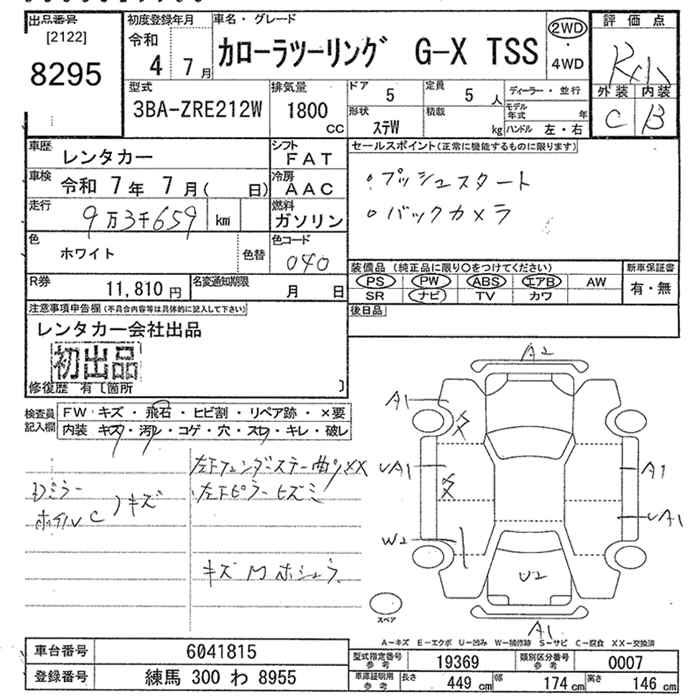 出品番号
[2122]
8295
初度登録年月
令和
4年7月
車名・グレード
カローラツーリング G-X TSS
2WD
・
4WD
評価点
外装 内装
C B
型式
3BA-ZRE212W
排気量
1800
cc
ドア
5
定員
5人
形状
ステW
積載
kg
ディーラー・並行
モデル年式 年
ハンドル 左・右
車歴
レンタカー
シフト
FAT
車検
令和 7年 7月( 日)
冷房
AAC
走行
9万3千659 km
燃料
ガソリン
色
ホワイト
色替
色コード
040
R券
11,810円
名変通知期限
月 日
セールスポイント(正常に機能するものに限ります)
。プッシュスタート
。バックカメラ
装備品 (純正品に限り〇をつけてください)
PS PW ABS エアB AW
SR ナビ TV カワ
新車保証書
有・無
後日品
注意事項申告欄(不具合内容等は具体的に記入して下さい)
レンタカー会社出品
初出品
修復歴 有〔箇所 〕
検査員
記入欄
FW キズ・飛石・ヒビ割・リペア跡・×要
内装 キズ・汚レ・コゲ・穴・スレ・キレ・破レ
ホイルC
キズ
左下フェンダーステー曲リXX
左下ピラーヒズミ
キズM ホシュラ
A2
A1
UA1
W2
A1
UA1
U2
A1
スペア
A-キズ E-エクボ U-凹み W-補修跡 S-サビ C-腐食 XX-交換済
車台番号
6041815
登録番号
練馬 300 わ 8955
型式指定番号
参考
19369
類別区分番号
参考
0007
車庫証明用
参考
長さ
449 cm
幅
174 cm
高さ
146 cm